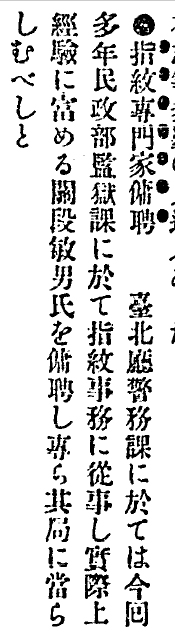 ●指紋專門家傭聘　臺北廳警務課に於ては今回
多年民政部監獄課に於て指紋事務に從事し實際上
經驗に富める關段敏男氏を傭聘し專ら其局に當ら
しむべしと